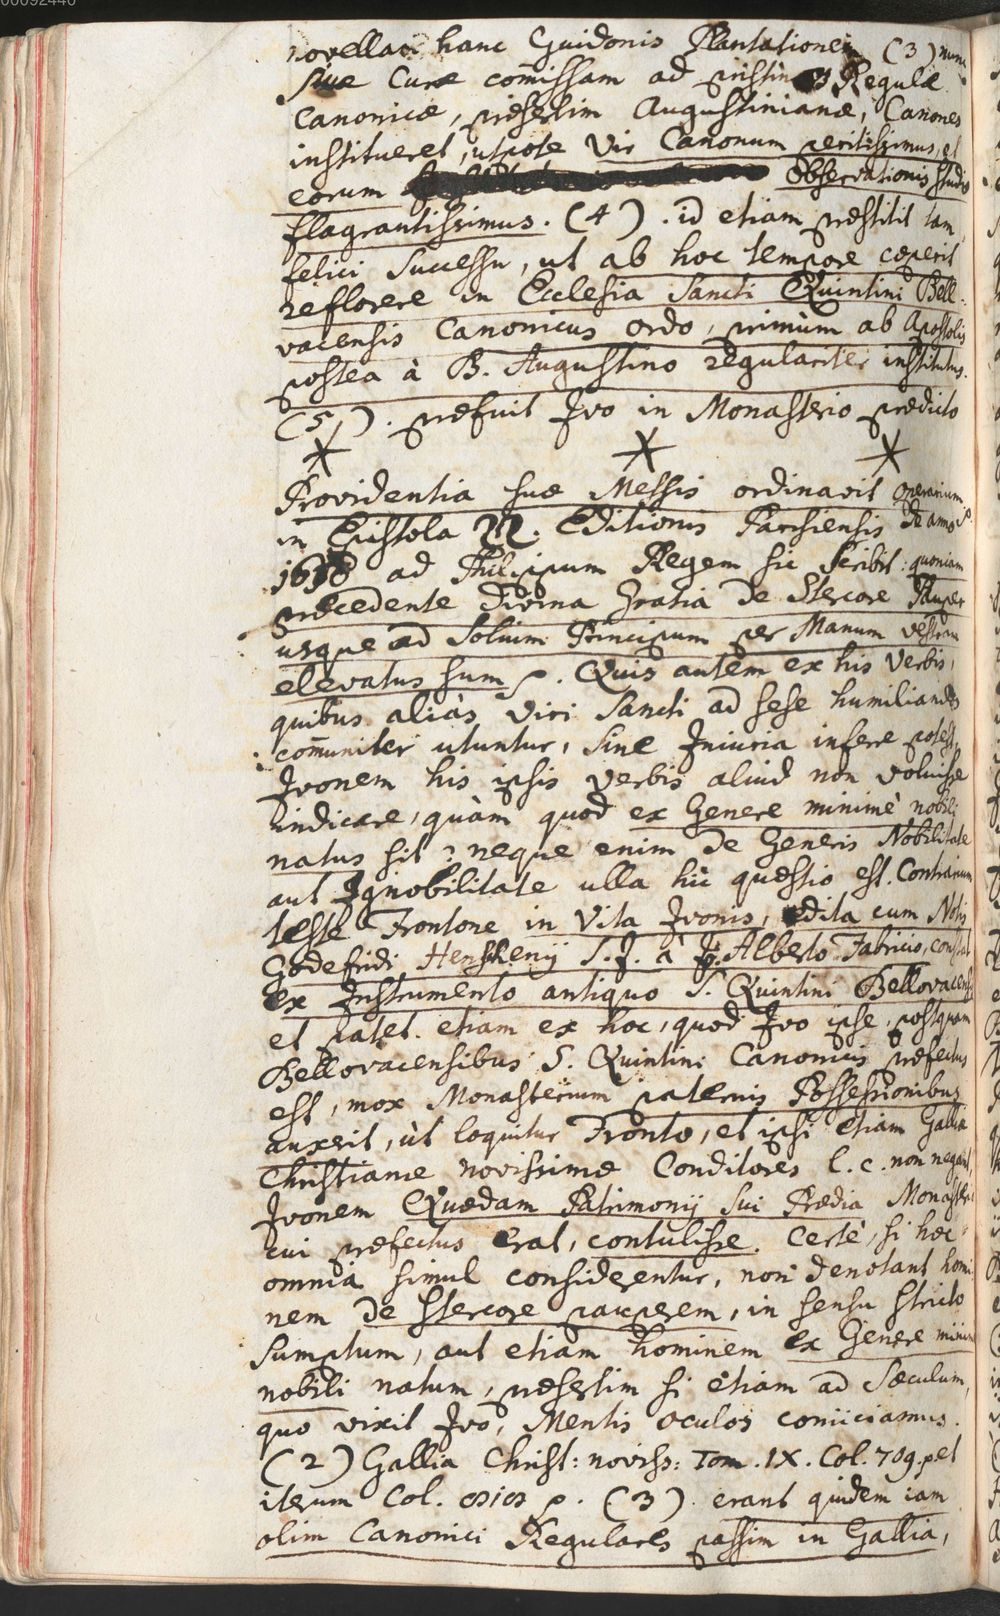 00092440
novellam hanc Guidonis Plantationem (3) nunc
suæ Curæ com̄issam ad pristinos Regulæ
Canonicæ, præsertim Augustinianæ, Canones
institueret, utpote Vir Canonum peritissimus, et
eorum Observationis studio
flagrantissimus. (4). id etiam præstitit tam
felici Successu, ut ab hoc tempore cœperit
reflorere in Ecclesia Sancti Quintini Bello-
vacensis Canonicus Ordo, primùm ab Apostolis
postea à B. Augustino regulariter institutus.
(5). præfuit Ivo in Monasterio prædicto
* * *
Providentia suæ Messis ordinavit operarium
in Epistola 22. Editionis Parisiensis de anno
ad Philippum Regem sic scribit: quoniam
præcedente Divina Gratia de Stercore Pauper
usque ad Solium Principum per Manum vestram
elevatus sum p. Quis autem ex his Verbis,
quibus aliàs Viri Sancti ad sese humiliandos
com̄uniter utuntur, sine Iniuria inferre potest,
Ivonem his ipsis verbis aliud non voluisse
indicare, quàm quod ex Genere minimè nobili
natus sit? neque enim de Generis Nobilitate
aut Ignobilitate ulla hìc quæstio est. Contrarium
teste Frontone in Vita Ivonis, edita cum Notis
Godefridi Henschenij S. J. à J. Alberto Fabricio, constat
ex Instrumento antiquo S. Quintini Bellovacensis
et patet etiam ex hoc, quod Ivo ipse, postquam
Bellovacensibus S. Quintini Canonicis præfectus
est, mox Monasterium paternis Possessionibus
auxerit, ùt loquitur Fronto, et ipsi etiam Galliæ
Christianæ novissimæ Conditores l. c. non negant,
Ivonem Quædam Patrimonij sui Prædia Monasterio
cui præfectus erat, contulisse. Certè, si hæc
omnia simul considerentur, non denotant homi-
nem de stercore pauperem, in sensu stricto
sumptum, aut etiam hominem ex Genere minime
nobili natum, præsertim si etiam ad Sæculum,
quo vixit Ivo, Mentis oculos coniiciamus.
(2) Gallia Christ: noviss: Tom. IX. Col. 709. p. et
iterum Col. p. (3) erant quidem iam
olim Canonici Regulares passim in Gallia,